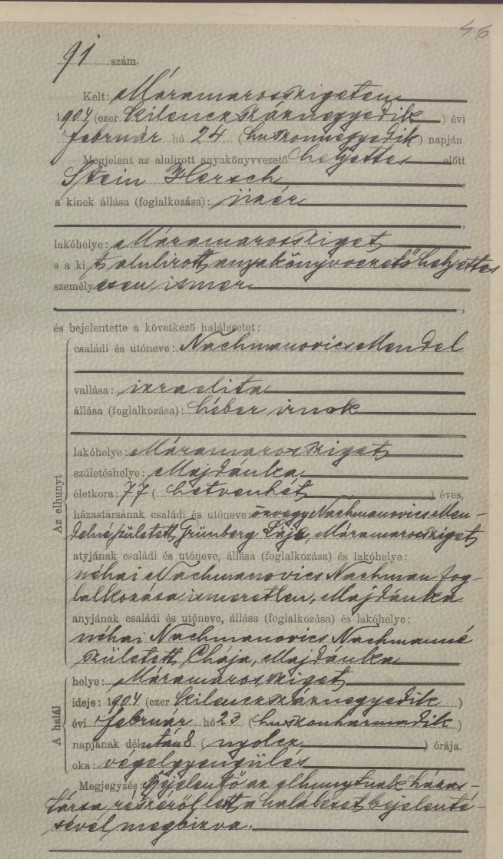 46
91 szám.
Kelt: Máramarosszigeten
1904 (ezer kilenczszáznegyedik) évi
február hó 24 (huszonnegyedik) napján
Megjelent az alulirott anyakönyvvezető helyettes előtt
Stein Hersch
a kinek állása (foglalkozása):
lakóhelye: Máramarossziget
s a ki t alulirott anyakönyvvezető helyettes
személyesen ismer
és bejelentette a következő halálesetet:
Az elhunyt
családi és utóneve: Nachmanovics Mendel
vallása: izraelita
állása (foglalkozása): héber irnok
lakóhelye: Máramarossziget
születéshelye: Majdánka
életkora: 77 (hetvenhét) éves,
házastársának családi és utóneve: özvegy Nachmanovics Men-
delné, született Grünberg Máramarossziget
atyjának családi és utóneve, állása (foglalkozása) és lakóhelye:
néhai Nachmanovics Nachman, fog-
lalkozása ismeretlen, Majdánka
anyjának családi és utóneve, állása (foglalkozása) és lakóhelye:
néhai Nachmanovics Nachmanné
született Chája, Majdánka
A halál
helye: Máramarossziget
ideje: 1904 (ezer kilenczszáznegyedik)
évi február hó 23 (huszonharmadik)
napjának délután 8 (nyolcz) órája.
oka: végelgyengülés
Megjegyzés: Bejelentő az elhunytnak házas-
társa részéről lett a haláleset bejelenté-
sével megbizva.